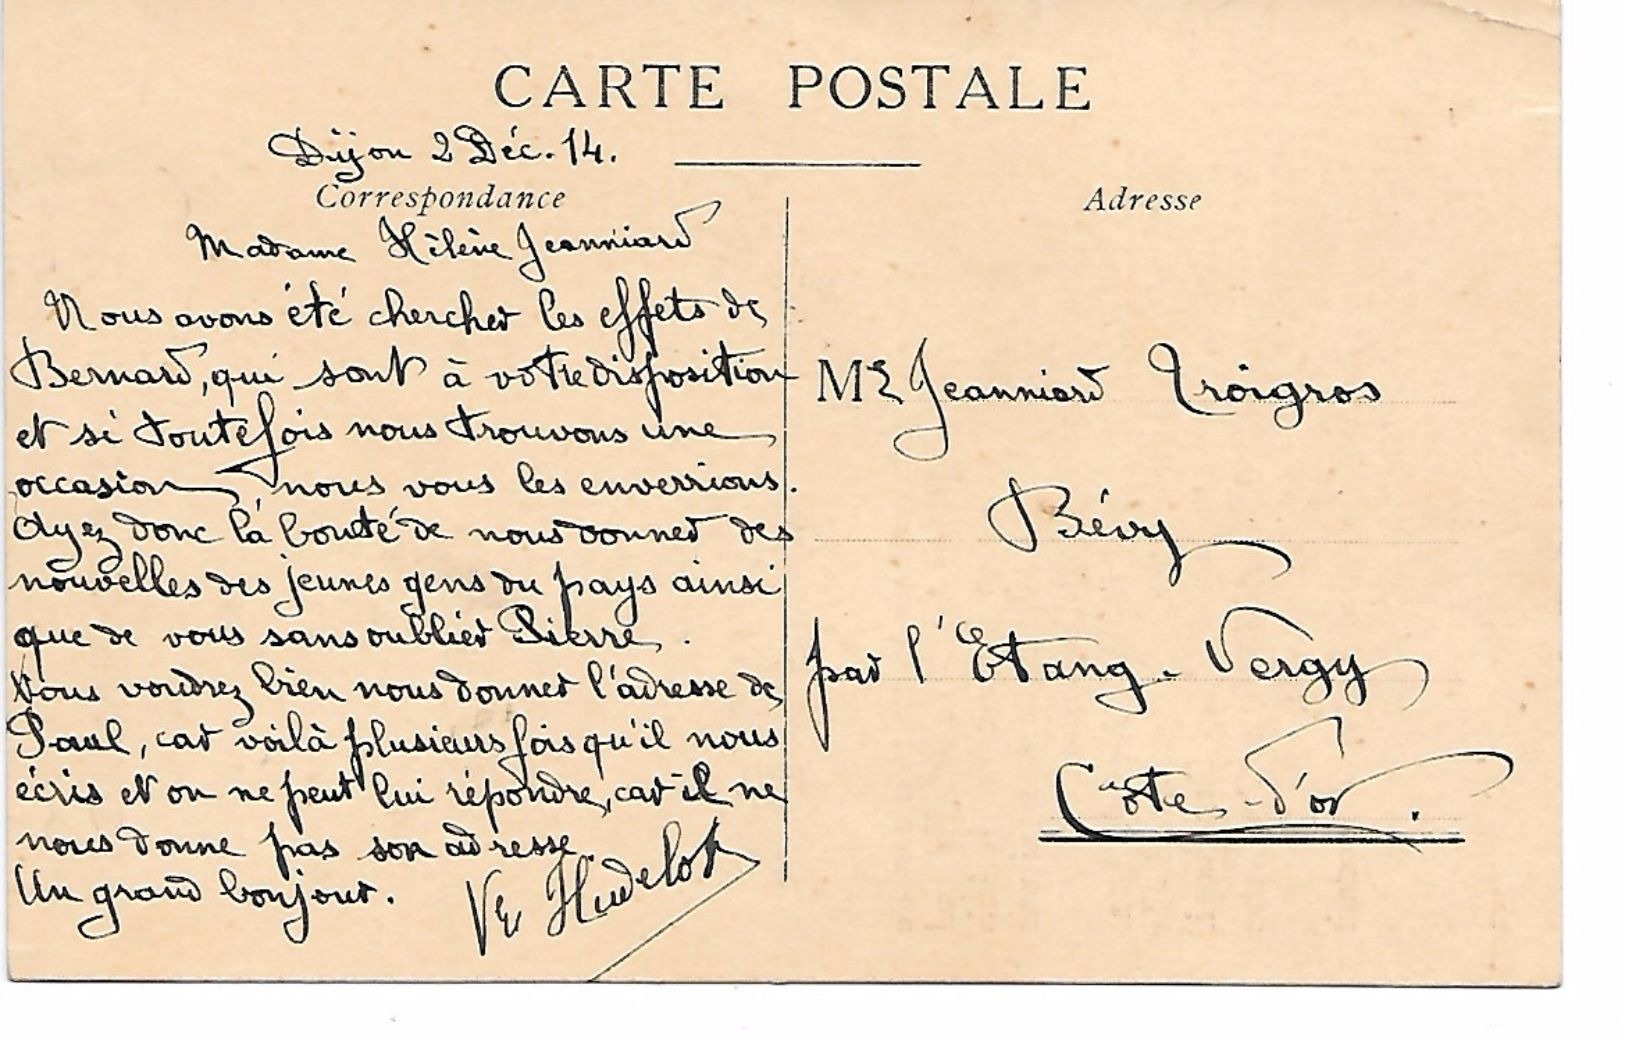 CARTE POSTALE
Dijon 2 Déc. 14.
Correspondance
Madame Hélène Jeanniard
Nous avons été chercher les effets de
Bernard, qui sont à votre disposition
et si toutefois nous trouvons une
occasion, nous vous les enverrions.
Ayez donc la bonté de nous donner des
nouvelles des jeunes gens du pays ainsi
que de vous sans oublier Pierre.
Vous voudrez bien nous donner l'adresse de
Paul, car voilà plusieurs fois qu'il nous
écris et on ne peut lui répondre, car il ne
nous donne pas son adresse
Un grand bonjour.
Ve Hudelot
Adresse
Me Jeanniard Troigros
Bévy
par l'Etang-Vergy
Côte-d'or.